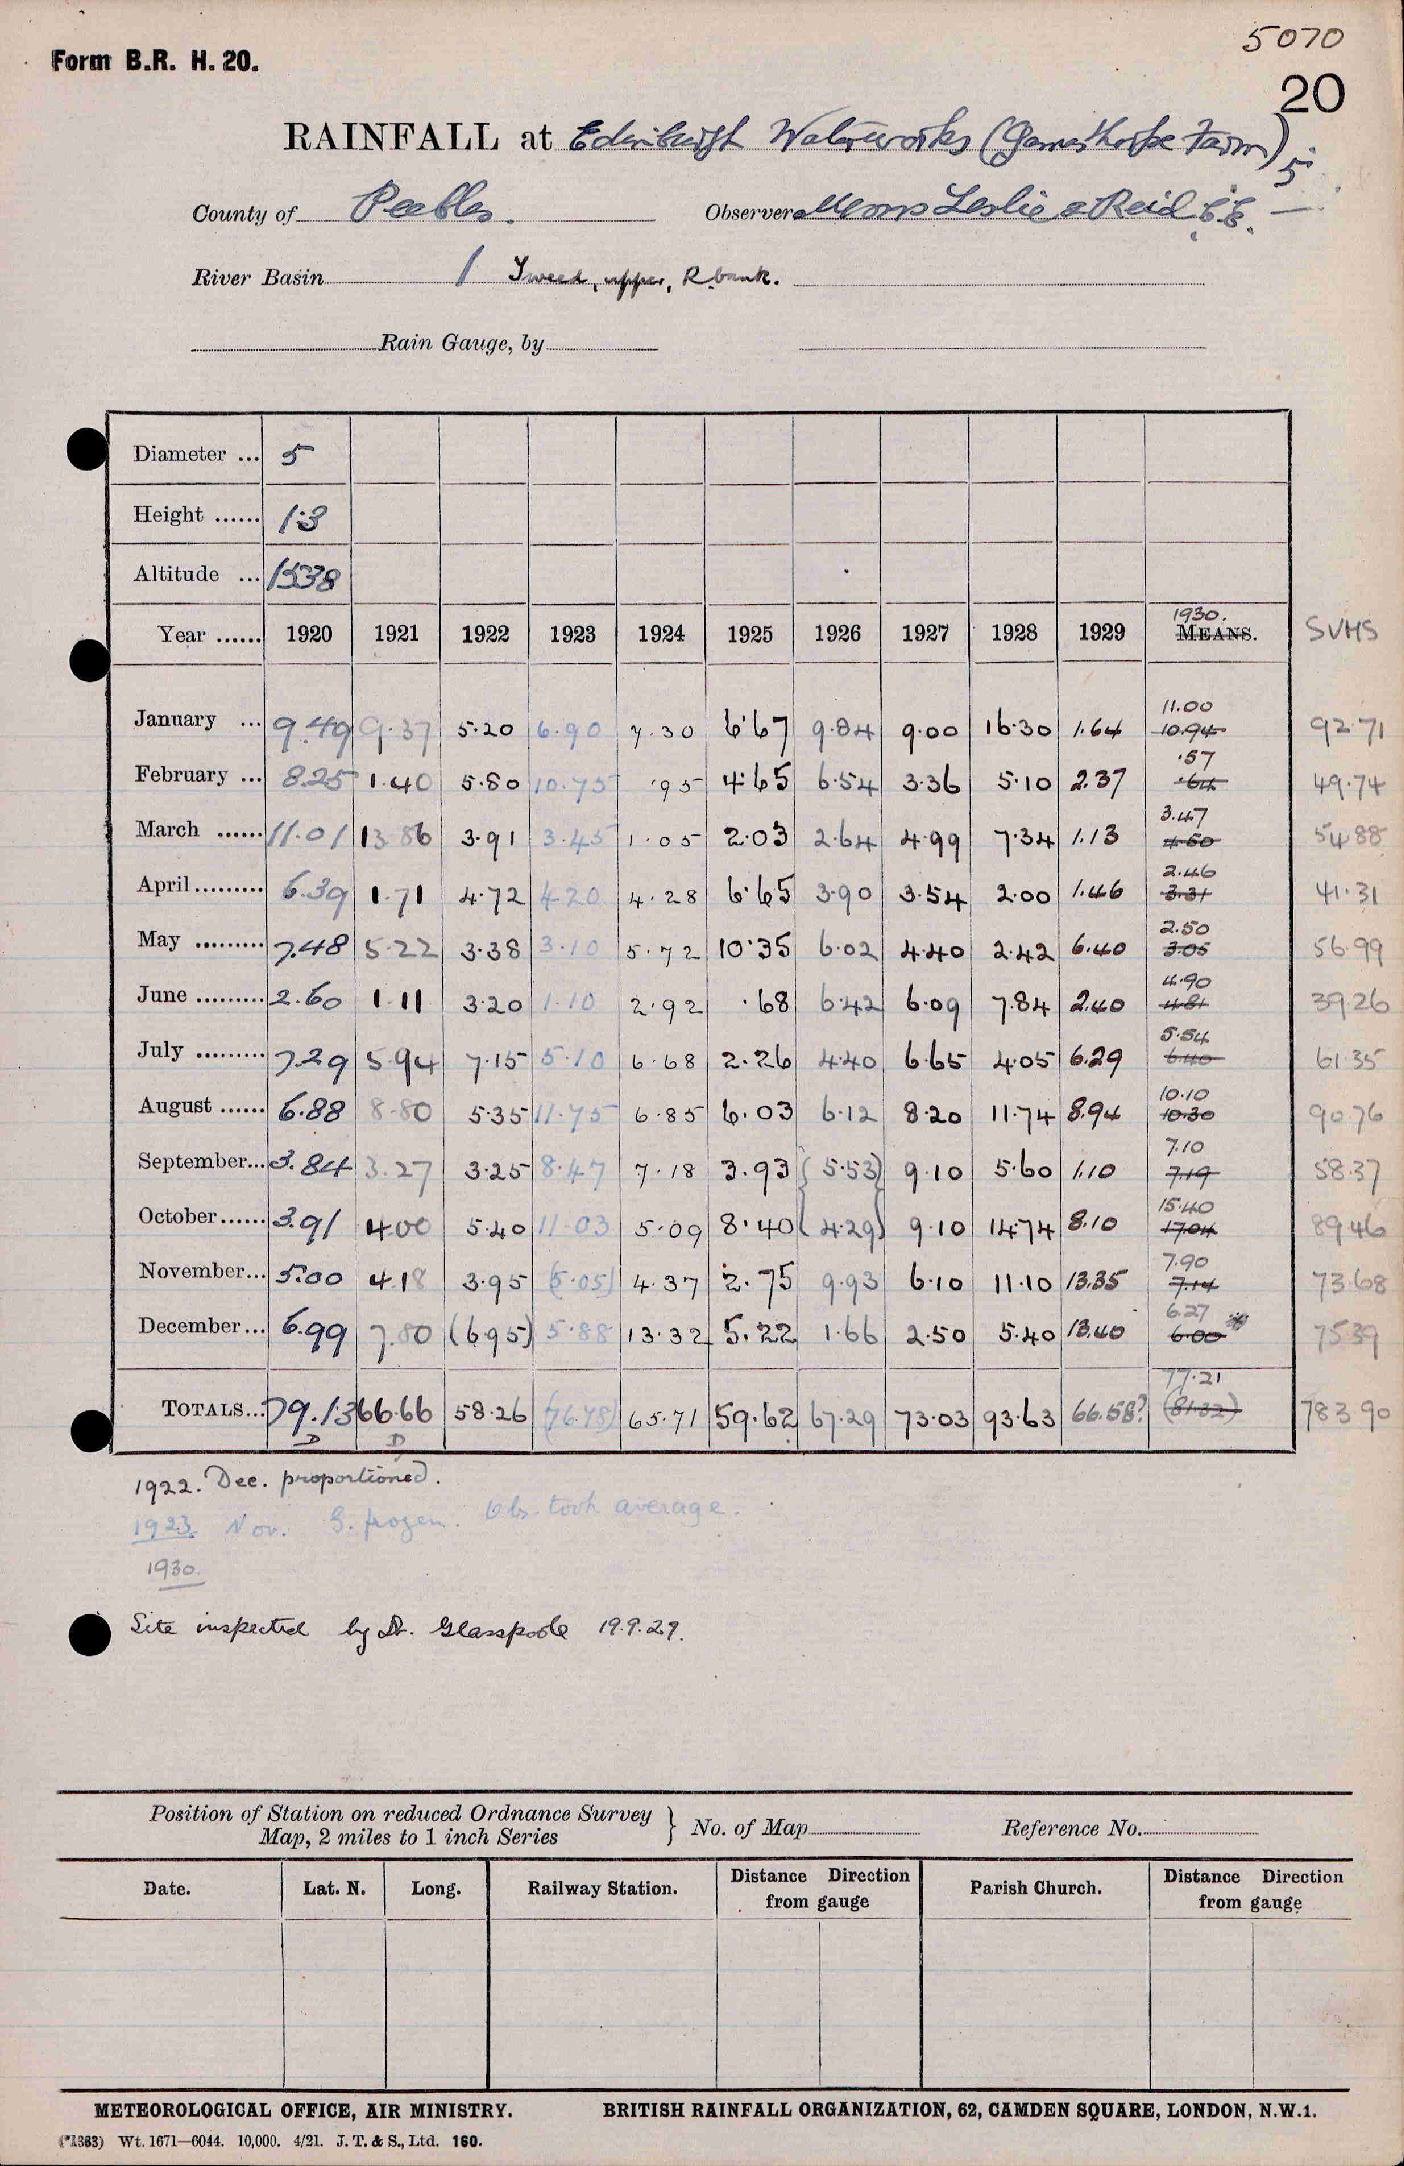 5070
Form B.R. H. 20.
20
RAINFALL at Edinburgh Waterworks (Gameshope Farm) 5
County of Peebles. Observer Messrs Leslie & Reid C.E.
River Basin 1 Tweed, upper, R. bank.
Rain Gauge, by
Diameter ... 5
Height ...... 1·3
Altitude ... 1538
1930.
Year ...... 1920 1921 1922 1923 1924 1925 1926 1927 1928 1929 MEANS. SUMS
11.00
January ... 9.49 9.37 5.20 6.90 7.30 6.67 9.84 9.00 16.30 1.64 10.94 92.71
.57
February ... 8.25 1.40 5.80 10.75 .95 4.65 6.54 3.36 5.10 2.37 .64 49.74
3.47
March ...... 11.01 13.86 3.91 3.45 1.05 2.03 2.64 4.99 7.34 1.13 4.50 54.88
2.46
April......... 6.39 1.71 4.72 4.20 4.28 6.65 3.90 3.54 2.00 1.46 3.31 41.31
2.50
May ......... 7.48 5.22 3.38 3.10 5.72 10.35 6.02 4.40 2.42 6.40 3.05 56.99
4.90
June ......... 2.60 1.11 3.20 1.10 2.92 .68 6.42 6.09 7.84 2.40 4.81 39.26
5.54
July ......... 7.29 5.94 7.15 5.10 6.68 2.26 4.40 6.65 4.05 6.29 6.40 61.35
10.10
August ...... 6.88 8.80 5.35 11.75 6.85 6.03 6.12 8.20 11.74 8.94 10.30 90.76
7.10
September... 3.84 3.27 3.25 8.47 7.18 3.93 (5.53) 9.10 5.60 1.10 7.19 58.37
15.40
October...... 3.91 4.00 5.40 11.03 5.09 8.40 (4.29) 9.10 14.74 8.10 17.04 89.46
7.90
November... 5.00 4.18 3.95 (5.05) 4.37 2.75 9.93 6.10 11.10 13.35 7.14 73.68
6.27
December... 6.99 7.80 (6.95) 5.88 13.32 5.22 1.66 2.50 5.40 13.40 6.00 75.39
77.21
TOTALS... 79.13 66.66 58.26 (76.78) 65.71 59.62 67.29 73.03 93.63 66.58? (81.32) 783.90
D D
1922. Dec. proportioned.
1923 Nov. G. frozen. Obs. took average.
1930.
Site inspected by Dr. Glasspoole 19.9.29.
Position of Station on reduced Ordnance Survey
Map, 2 miles to 1 inch Series } No. of Map Reference No.
Date. Lat. N. Long. Railway Station. Distance Direction from gauge Parish Church. Distance Direction from gauge
METEOROLOGICAL OFFICE, AIR MINISTRY. BRITISH RAINFALL ORGANIZATION, 62, CAMDEN SQUARE, LONDON, N.W.1.
(*1383) Wt. 1671—6044. 10,000. 4/21. J. T. & S., Ltd. 160.